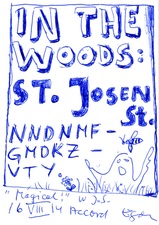 IN THE
WOODS:
ST. JOSEN
St.
NNDNMF-
GMDKZ-
VTY.
"Magical!" W J.S.
16 VIII 14 Accord